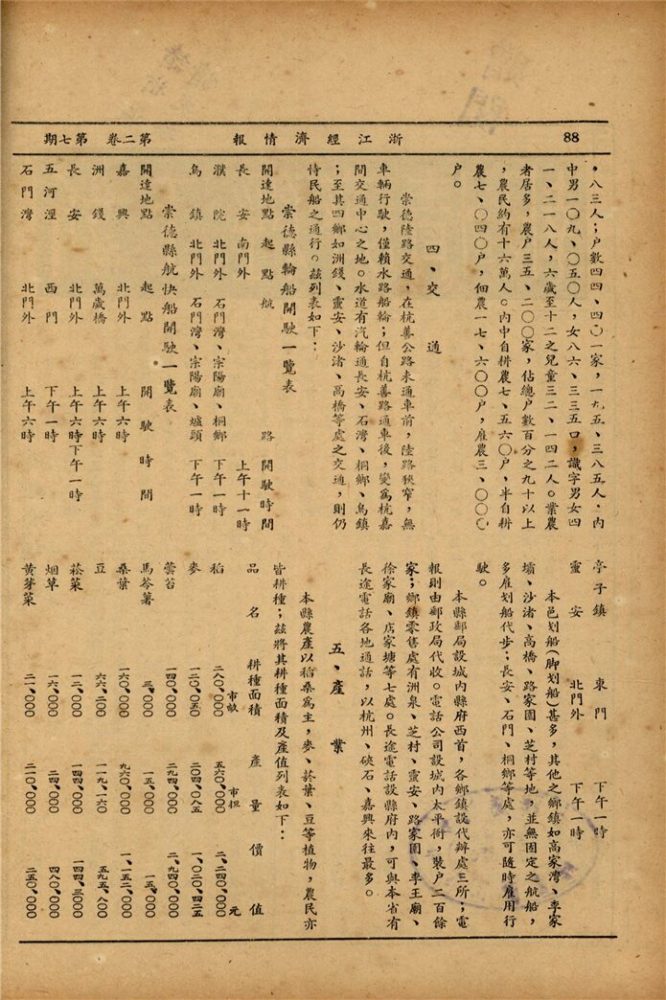 88
浙江經濟情報
第二卷 第七期
，八三人；户數四四、四〇一家，一九五、三八五人，内
中男一〇九、〇五〇人，女八六、三三五口，識字男女四
一、二一八人，六歲至十二之兒童三二、一四二人。業農
者居多，農户三五、二〇〇家，佔總户數百分之九十以上
，農民約有十六萬人。内中自耕農七、五六〇户，半自耕
農七、〇四〇户，佃農一七、六〇〇户，雇農三、〇〇〇
户。
四、交通
崇德陸路交通，在杭善公路未通車前，陸路狹窄，無
車輛行駛，僅賴水路船輪；但自杭善路通車後，變爲杭嘉
間交通中心之地。水道有汽輪通長安、石灣、桐鄉、烏鎮
；至其四鄉如洲錢、靈安、沙渚、高橋等處之交通，則仍
恃民船之通行。兹列表如下：
崇德縣輪船開駛一覽表
開達地點 起點 航路 開駛時間
長安 南門外 上午十一時
濮院 北門外 石門灣、宗陽廟、桐鄉 下午一時
烏鎮 北門外 石門灣、宗陽廟、爐頭 下午一時
崇德縣航快船開駛一覽表
開達地點 起點 開駛時間
嘉興 北門外 上午六時
洲錢 萬歲橋 上午六時
長安 北門外 上午六時下午一時
五河涇 西門 下午一時
石門灣 北門外 上午六時
亭子鎮 東門 下午一時
靈安 北門外 下午一時
本邑划船(脚划船)甚多，其他之鄉鎮如高家灣、李家
壩、沙渚、高橋、路家園、芝村等地，並無固定之航船，
多雇划船代步；長安、石門、桐鄉等處，亦可隨時雇用行
駛。
本縣郵局設城内縣府西首，各鄉鎮設代辦處三所；電
報則由郵政局代收。電話公司設城内太平衖，裝户二百餘
家；鄉鎮零售處有洲泉、芝村、靈安、路家園、李王廟、
徐家廟、店家塘等七處。長途電話設縣府内，可與本省有
長途電話各地通話，以杭州、硤石、嘉興來往最多。
五、產業
本縣農產以稻桑爲主，麥、菸葉、豆等植物，農民亦
皆耕種；兹將其耕種面積及產值列表如下：
品名 耕種面積 產量 價值
市畝 市担 元
稻 二八〇、〇〇〇 五六〇、〇〇〇 二、二四〇、〇〇〇
麥 一二〇、〇五〇 二〇四、〇八五 一、〇二〇、四二五
蕓苔 一四〇、〇〇〇 二九四、〇〇〇 二、九四〇、〇〇〇
馬苓薯 三、〇〇〇 一五、〇〇〇 一五、〇〇〇
桑葉 一六〇、〇〇〇 九六〇、〇〇〇 一、一五二、〇〇〇
豆 六六、二〇〇 一一九、一六〇 五九五、八〇〇
菘菜 一二、〇〇〇
烟草 一六、〇〇〇 二四、〇〇〇 四八〇、〇〇〇
黄芽菜 二一、〇〇〇 二一〇、〇〇〇 二五〇、〇〇〇